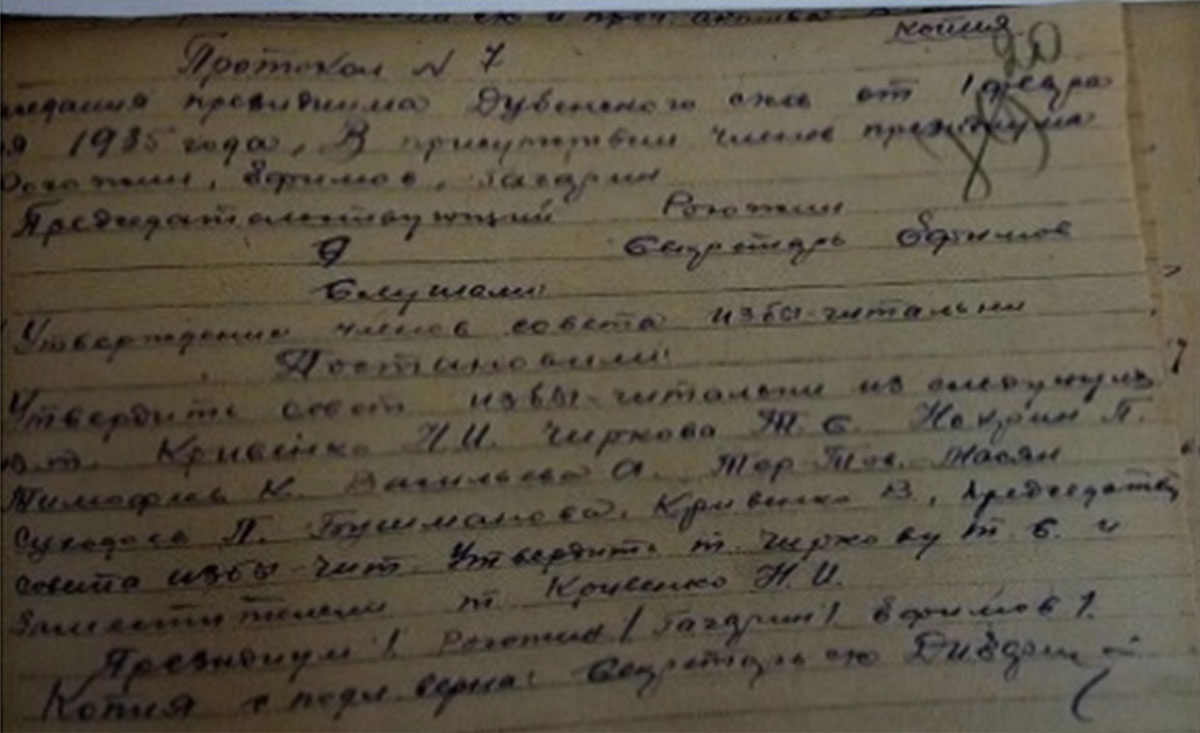 копия
20
Протокол N 7
заседания президиума Дубенского с/х от 1 февра
ля 1935 года. В присутствии членов президиума
Рогожин, Ефимов, Гагарин
Председательствующий Рогожин
Секретарь Ефимов
Слушали:
Утверждение членов совета избы-читальни
Постановили:
Утвердить совет избы-читальни из следующих
т.т. Кривенко Н.И. Чиркова Т.С. П.
Тимофеев К. Васильева А.
П. Тушманова, Кривенко В., Председател
совета избы-чит. Утвердить т. Чиркову Т.С. и
Заместителем т Кривенко Н.И.
Президиум /Рогожин/ Гагарин/ Ефимов/.
Копия с подл. верна: Секретарь